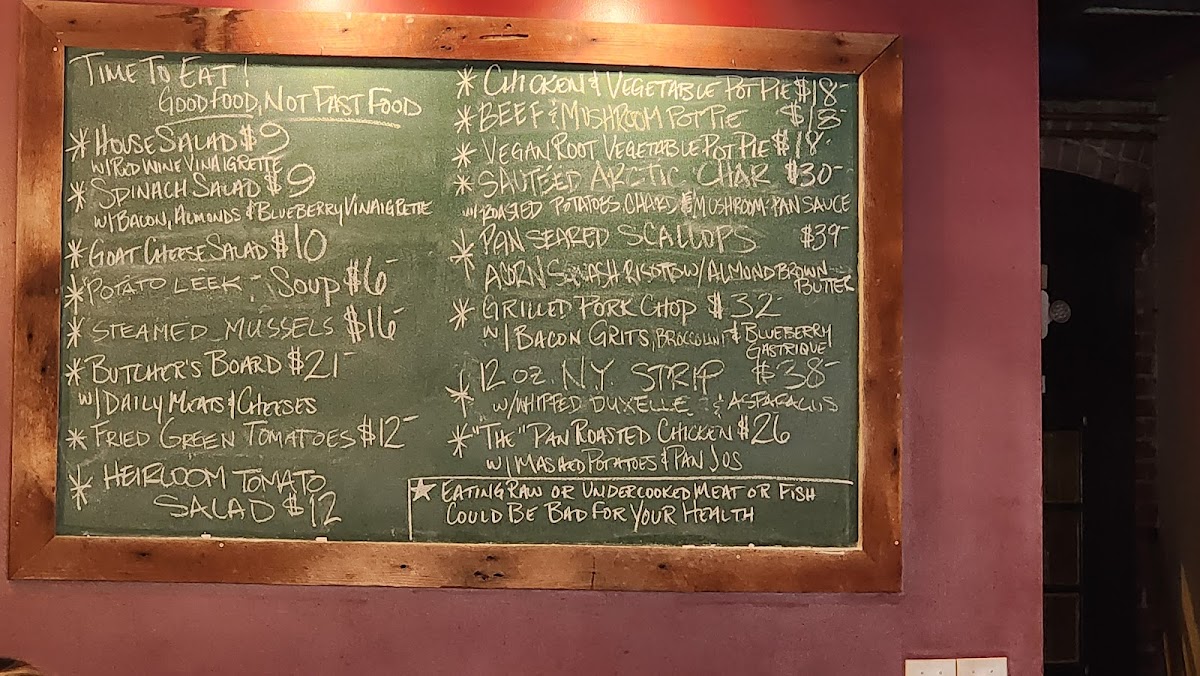 Time To Eat!
Good Food, Not Fast Food
* House Salad $9
w/ Red Wine Vinaigrette
* Spinach Salad $9
w/ Bacon, Almonds & Blueberry Vinaigrette
* Goat Cheese Salad $10
* Potato Leek - Soup $6-
* Steamed Mussels $16-
* Butcher's Board $21-
w/ Daily Meats & Cheeses
* Fried Green Tomatoes $12-
* Heirloom Tomato
Salad $12
* Chicken & Vegetable Pot Pie $18-
* Beef & Mushroom Pot Pie $18-
* Vegan Root Vegetable Pot Pie $18-
* Sautéed Arctic Char $30-
w/ Roasted Potatoes, Chard & Mushroom Pan Sauce
* Pan Seared Scallops $39-
Acorn Squash Risotto w/ Almond Brown
Butter
* Grilled Pork Chop $32-
w/ Bacon Grits, Broccolini & Blueberry
Gastrique
* 12 oz. N.Y. Strip $38-
w/ Whipped Duxelle & Asparagus
* "The" Pan Roasted Chicken $26
w/ Mashed Potatoes & Pan Jus
★ Eating Raw or Undercooked Meat or Fish
Could Be Bad For Your Health